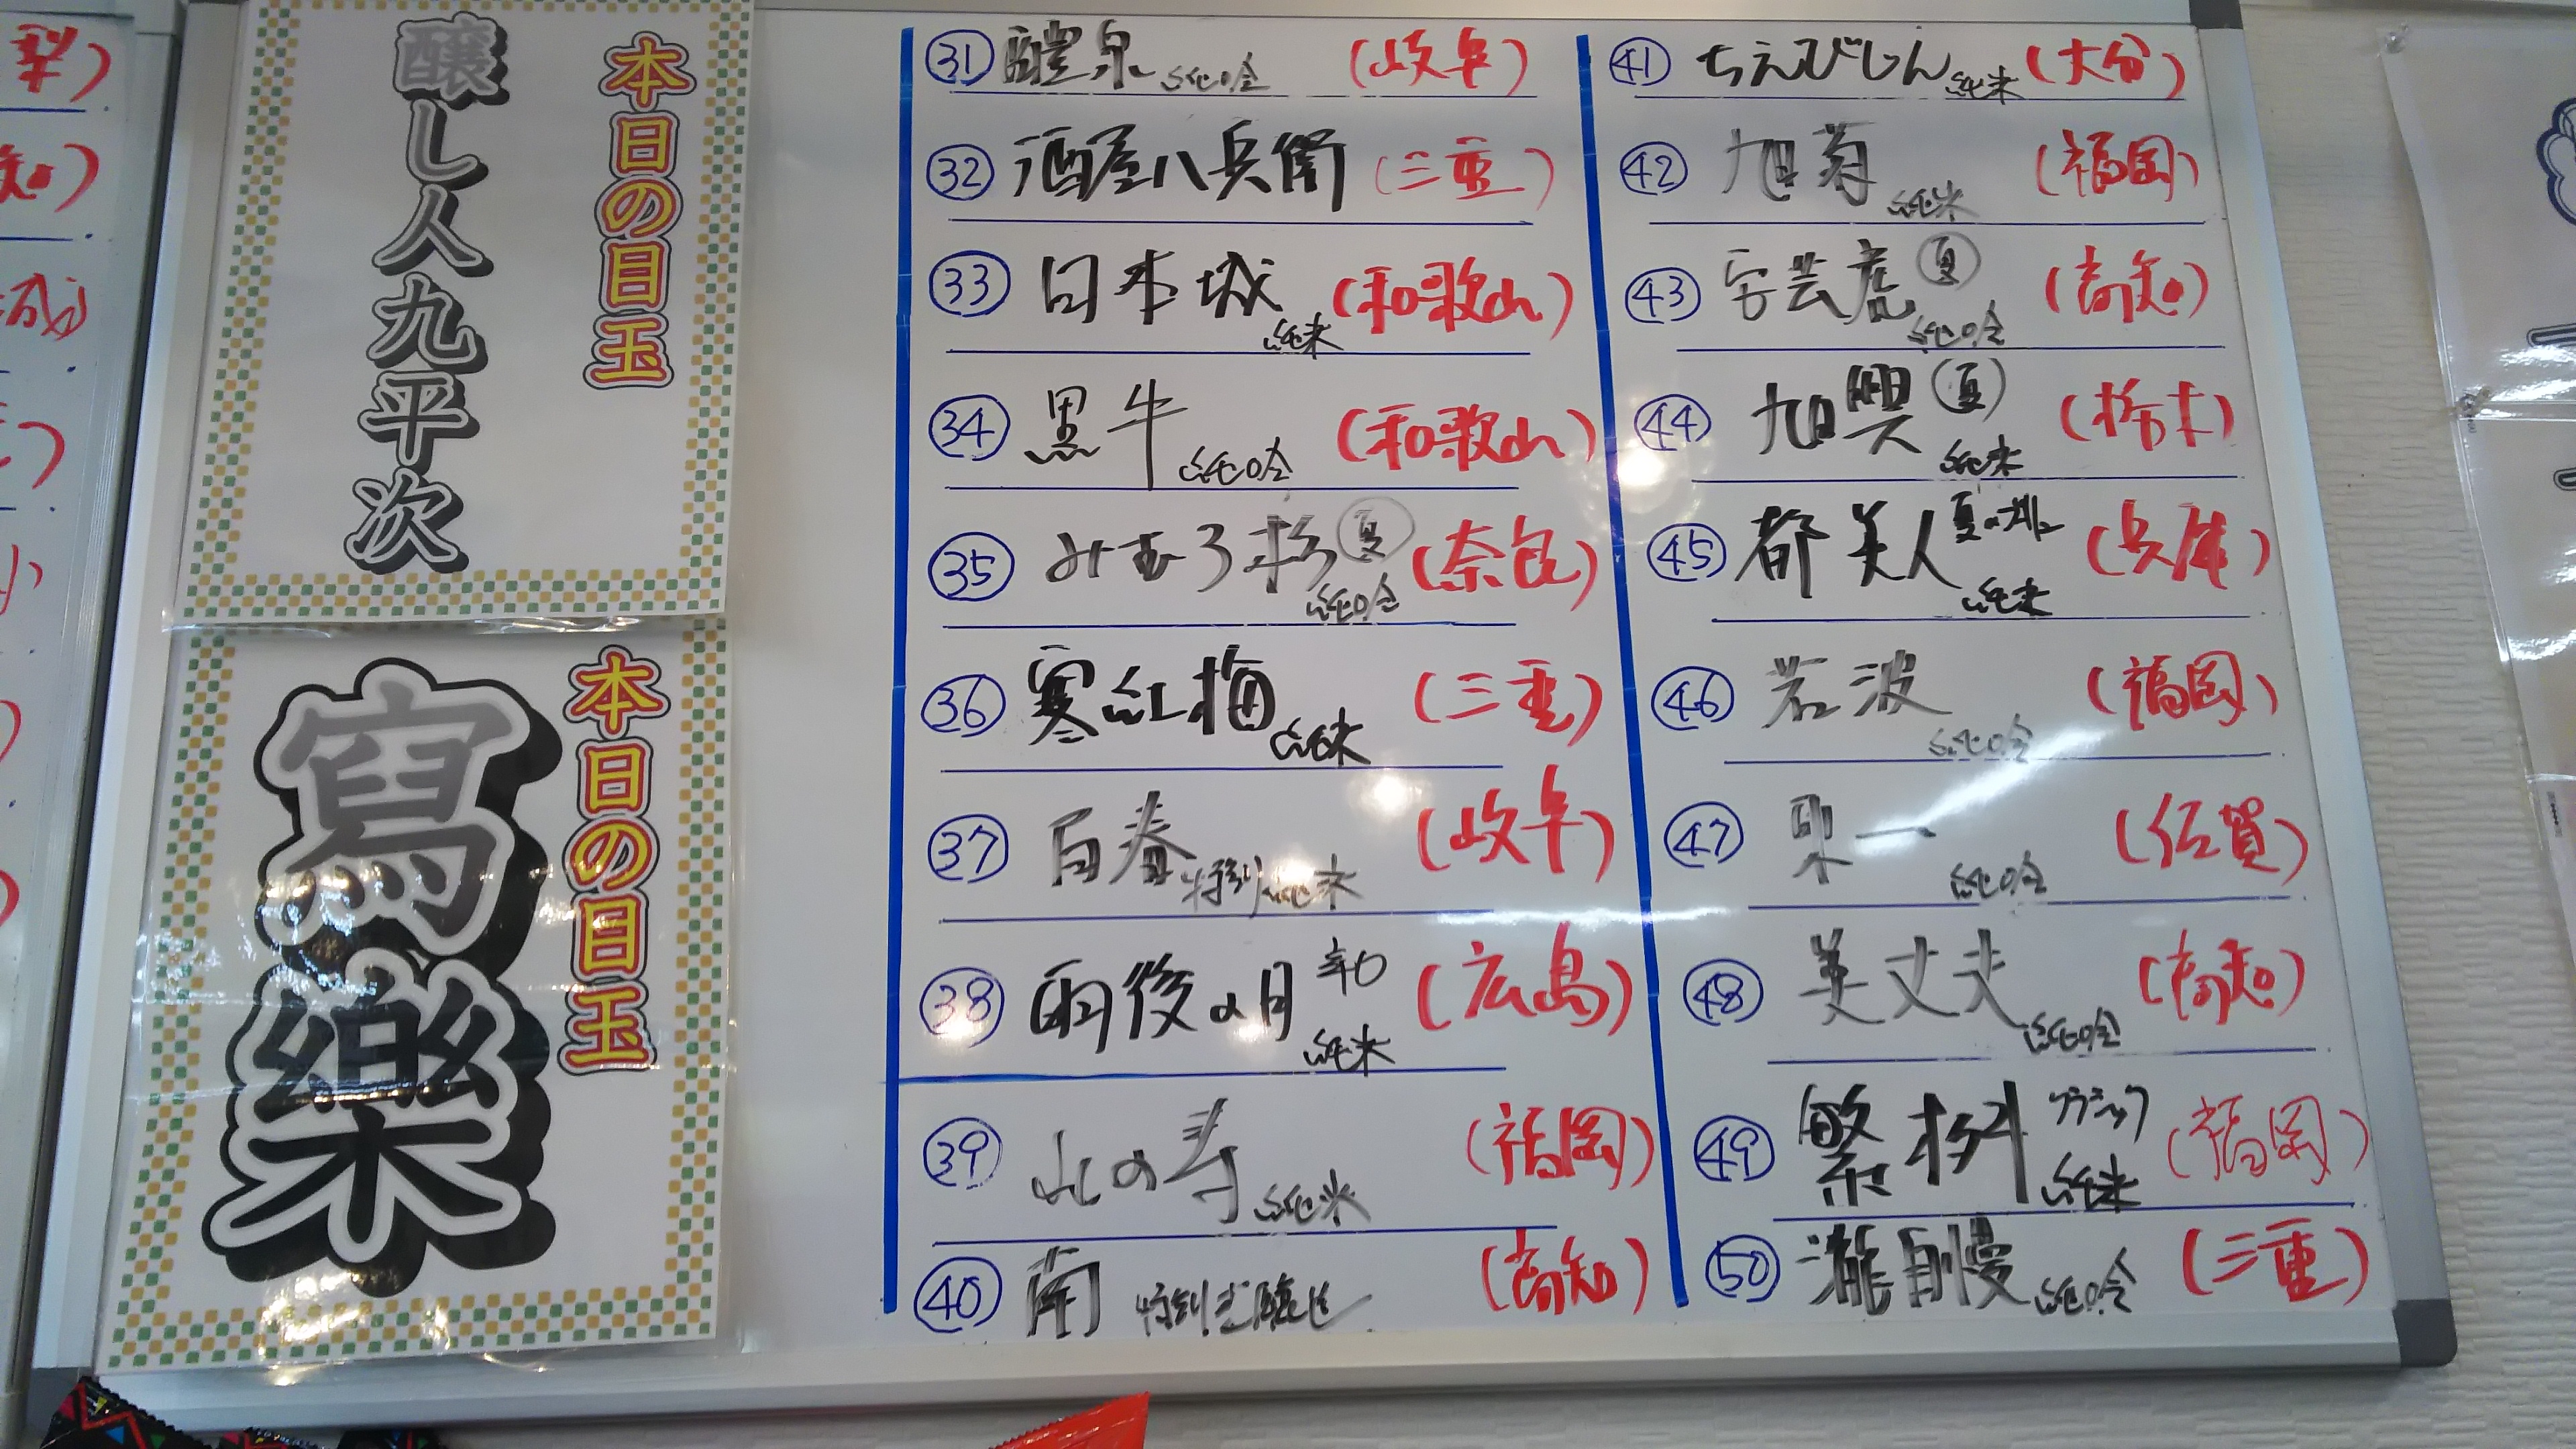 本日の目玉
醸し人九平次
本日の目玉
寫樂
㉛ 醴泉 純吟 (岐阜)
㉜ 酒屋八兵衛 (三重)
㉝ 日本城 純米 (和歌山)
㉞ 黒牛 純吟 (和歌山)
㉟ みむろ杉 夏 純吟 (奈良)
㊱ 寒紅梅 純米 (三重)
㊲ 百春 特別純米 (岐阜)
㊳ 雨後の月 辛口 純米 (広島)
㊴ 山の寿 純米 (福岡)
㊵ 南 特別本醸造 (高知)
㊶ ちえびじん 純米 (大分)
㊷ 旭菊 純米 (福岡)
㊸ 安芸虎 夏 純吟 (高知)
㊹ 旭興 夏 純米 (栃木)
㊺ 都美人 夏の 純米 (兵庫)
㊻ 若波 純吟 (福岡)
㊼ 聚一 純吟 (佐賀)
㊽ 美丈夫 純吟 (高知)
㊾ 繁桝 クラシック 純米 (福岡)
㊿ 瀧自慢 純吟 (三重)